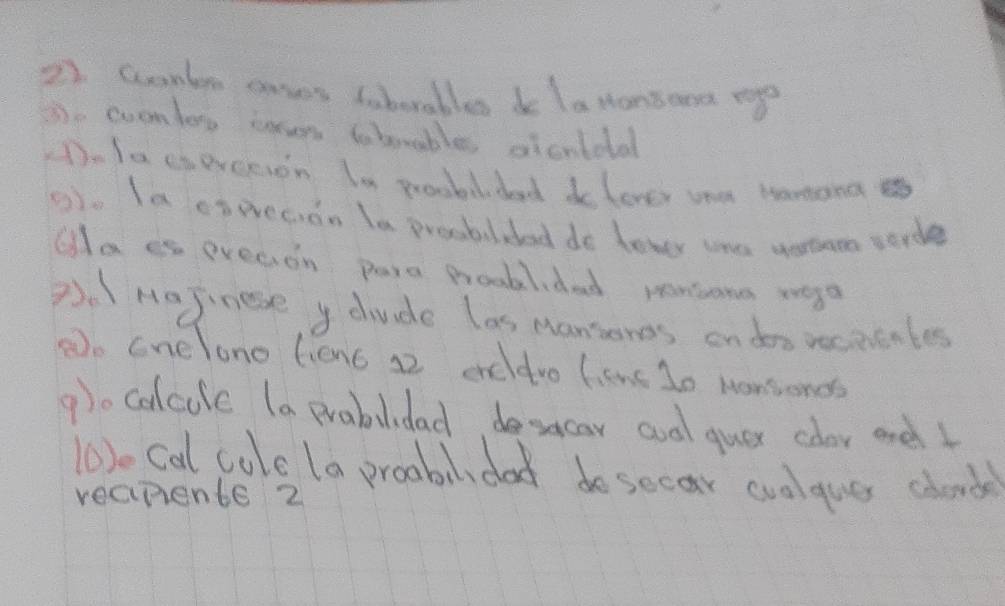 2). cuantos casos faborables de la Monsana roja
3)o cuontos casos faborables aientotal
4)o la espreción la proobilidad de tener una Mansana es
5)o la espreción la proobilidad de tener una mansana verde
6)la es preción para Prooblidad Mansana rroja
7)o I Mojinese y divide las Mansanas en dos recipientes
8)o Enel uno tiene 12 enel otro tiene 10 Mansanas
9)o calcule la prabilidad de sacar cual quier color en el 1
10)o Cal cule la proobilidad de secar cualquier color del
recipiente 2